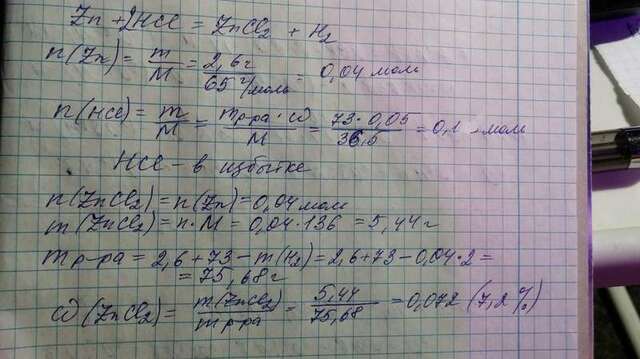 Zn + 2HCl = ZnCl₂ + H₂
n(Zn) = m/M = 2,6г/65 г/моль = 0,04 моль
n(HCl) = m/M = mр-ра·ω/M = 73·0,05/36,5 = 0,1 моль
HCl – в избытке
n(ZnCl₂) = n(Zn) = 0,04 моль
m(ZnCl₂) = n·M = 0,04·136 = 5,44 г
mр-ра = 2,6 + 73 – m(H₂) = 2,6 + 73 – 0,04·2 =
= 75,68 г
ω(ZnCl₂) = m(ZnCl₂)/mр-ра = 5,44/75,68 = 0,072 (7,2%)